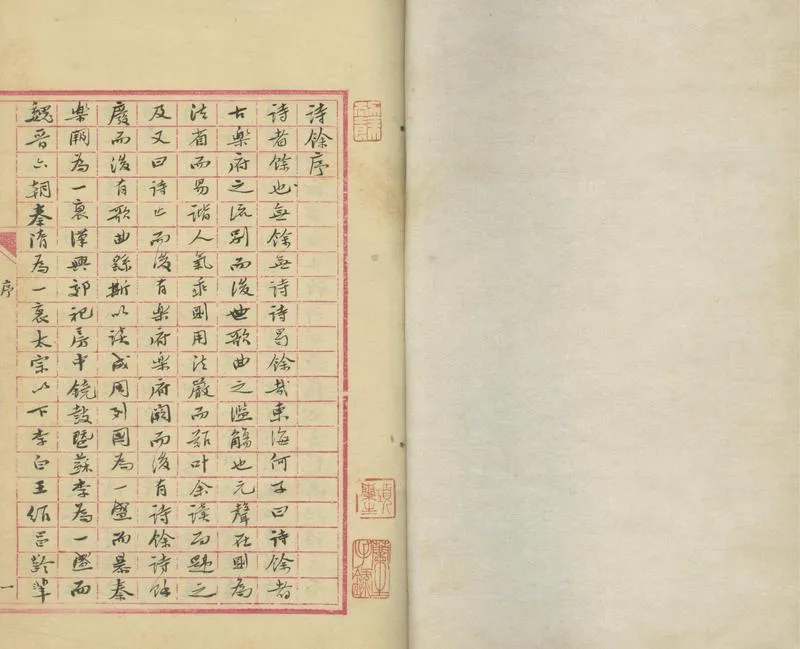 詩餘序
詩者餘也無餘無詩詩曷餘哉東海何子曰詩餘者
古樂府之流別而後世歌曲之濫觴也元聲在則為
法省而易諧人氣乖則用法嚴而難叶余讀而韙之
及又曰詩亡而後有樂府樂府闕而後有詩餘詩餘
廢而後有歌曲繇斯以談成周列國為一盛而暴秦
樂闕為一衰漢興郊祀房中鐃鼓暨蘇李為一盛而
魏晉六朝秦隋為一衰太宗以下李白王昌齡輩
序
一